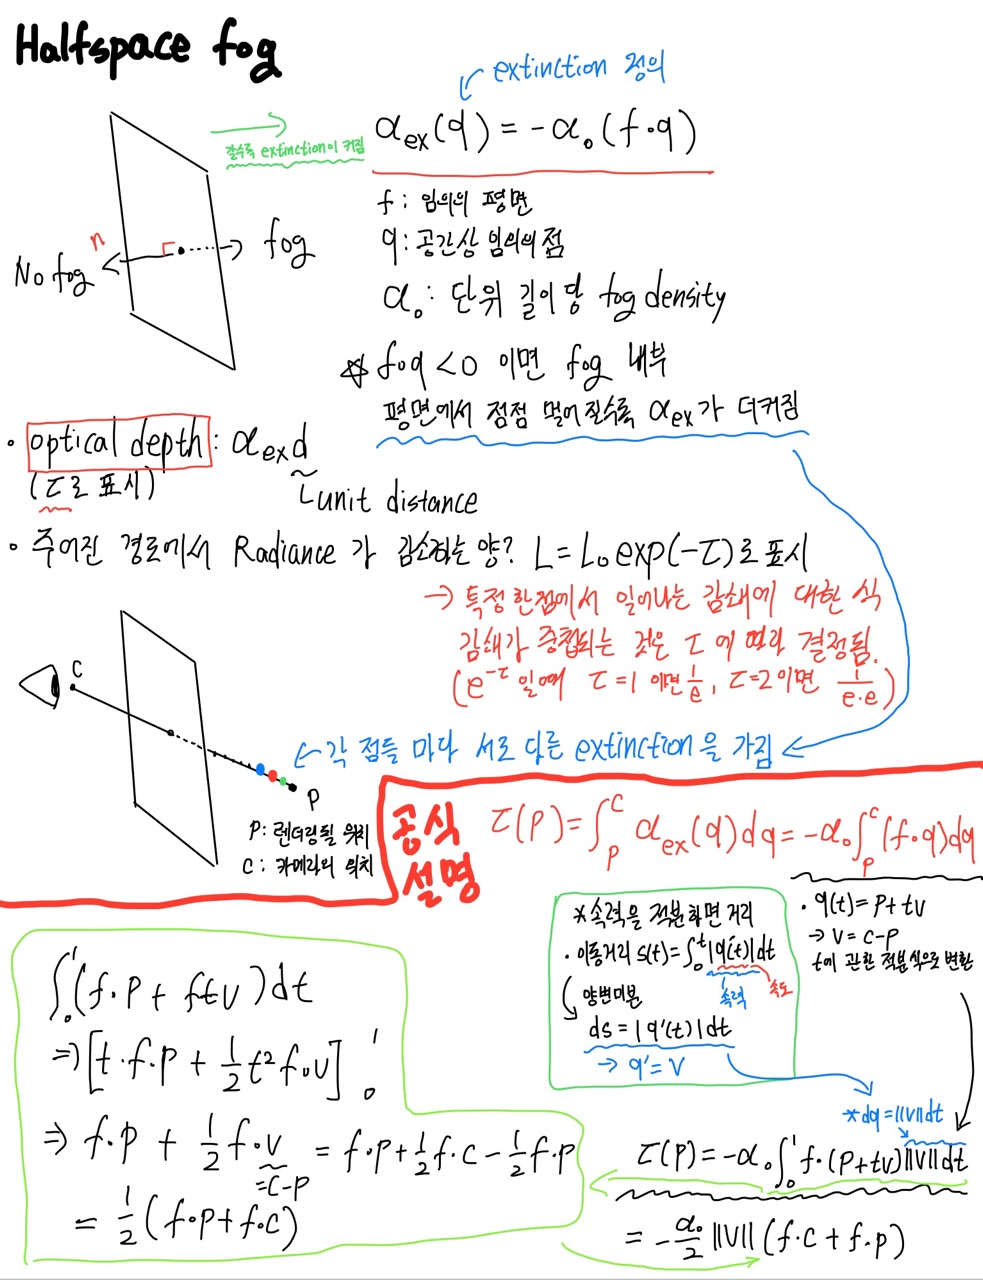 Halfspace fog
extinction 정의
갈수록 extinction이 커짐
α_ex(q) = -α₀(f·q)
f: 임의의 평면
q: 공간상 임의의 점
α₀: 단위 길이당 fog density
n
No fog
fog
☆ f·q < 0 이면 fog 내부
평면에서 점점 멀어질수록 α_ex가 더커짐
• optical depth : α_ex d
(τ로 표시)
unit distance
• 주어진 경로에서 Radiance 가 감소하는 양? L = L₀exp(-τ)로 표시
→ 특정 한점에서 일어나는 감쇄에 대한 식
감쇄가 중첩되는 것은 τ에 따라 결정됨.
(e^-τ 일때 τ=1 이면 1/e, τ=2이면 1/e·e)
C
← 각 점들 마다 서로 다른 extinction을 가짐
P
P: 렌더링될 위치
C: 카메라의 위치
공식
설명
τ(P) = ∫_P^C α_ex(q)dq = -α₀∫_P^C(f·q)dq
• q(t) = P+tV
→ V = C-P
t에 관한 적분식으로 변환
*속력을 적분하면 거리
• 이동거리 s(t) = ∫₀^t|q'(t)|dt
속력
속도
양변미분
ds = |q'(t)|dt
→ q' = V
*dq = ||V||dt
τ(P) = -α₀∫₀¹ f·(P+tV)||V||dt
∫₀¹(f·P + ftV)dt
⇒ [t·f·P + 1/2 t² f·V]₀¹
⇒ f·P + 1/2 f·V = f·P + 1/2 f·C - 1/2 f·P
=C-P
= 1/2 (f·P + f·C)
= -α₀/2 ||V|| (f·C + f·P)